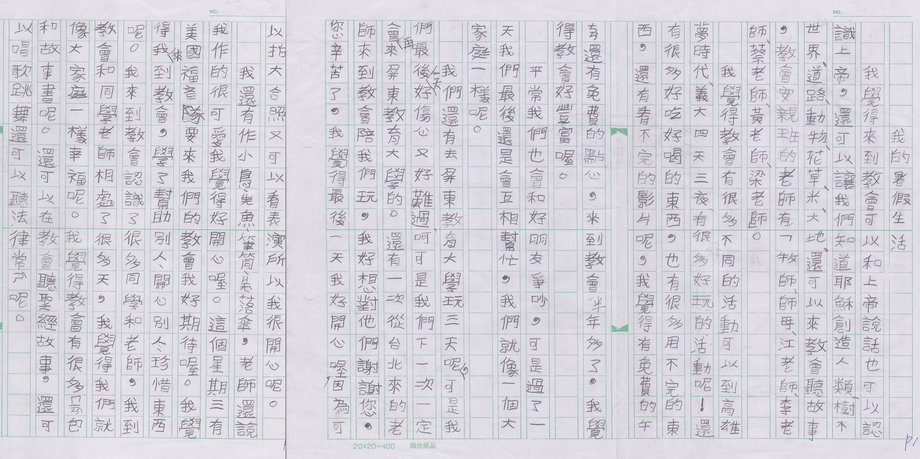 我的暑假生活
我覺得來到教會可以和上帝說話也可以認
識上帝，還可以讓我們知道耶穌創造人類、樹木、
世界、道路、動物、花草、米、大地、還可以來教會聽故事
，教會安親班的老師有「牧師、師母、江老師、李老
師、蔡老師、黃老師、梁老師。
我覺得教會有很多不同的活動可以到高雄
夢時代、義大四天三夜有很多好玩的活動呢！還
有很多好吃好喝的東西，也有很多用不完的東
西，還有看不完的影片呢，我覺得有免費的午
餐還有免費的點心，來到教會半年多了，我覺
得教會好豐富喔。
平常我們也會和好朋友爭吵，可是過了一
天我們最後還是會互相幫忙，我們就像一個大
家庭一樣呢。
我們還有去屏東教育大學玩三天呢，可是我
們最後一天好傷心又好難過呵可是我們下一次一定
會再來屏東教育大學的。還有一次從台北來的老
師來到教會陪我們玩，我好想對他們謝謝您，
您辛苦了，我覺得最後一天我好開心喔，因為可
以拍大合照又可以看表演所以我很開心呢。
我還有作小鳥、鬼魚、筆筒、降落傘，老師還說
我作的很可愛我覺得好開心喔。這個星期三有
美國福音隊要來我們的教會我好期待喔。我覺
得我來到教會，學了幫助別人、開心別人、珍惜東西
呢。我來到教會認識了很多同學和老師，我到
教會和同學老師相處了很多天，我覺得我們就
像大家庭一樣幸福呢。我覺得教會有很多麵包
和故事書呢。還可以在教會聽聖經故事，還可
以唱歌跳舞還可以聽法律常識呢。
20X20=400 聯合紙品
NO.
NO.
P.1